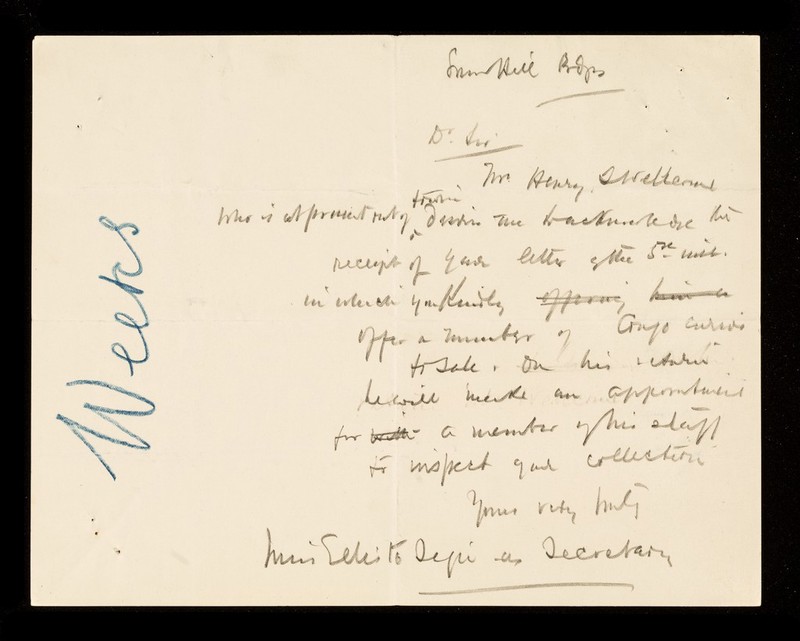 Snow Hill Bdgs
Dr. Sir
Mr Henry S Wellcome
who is at present out of town desires me to acknowledge the
receipt of your letter of the 5th inst.
in which you kindly offering him a
offer a number of Congo curios
to sale. On his return
he will make an appointment
for with a member of his staff
to inspect your collection
Yours very truly
Miss Ellis to sign as Secretary
Weeks